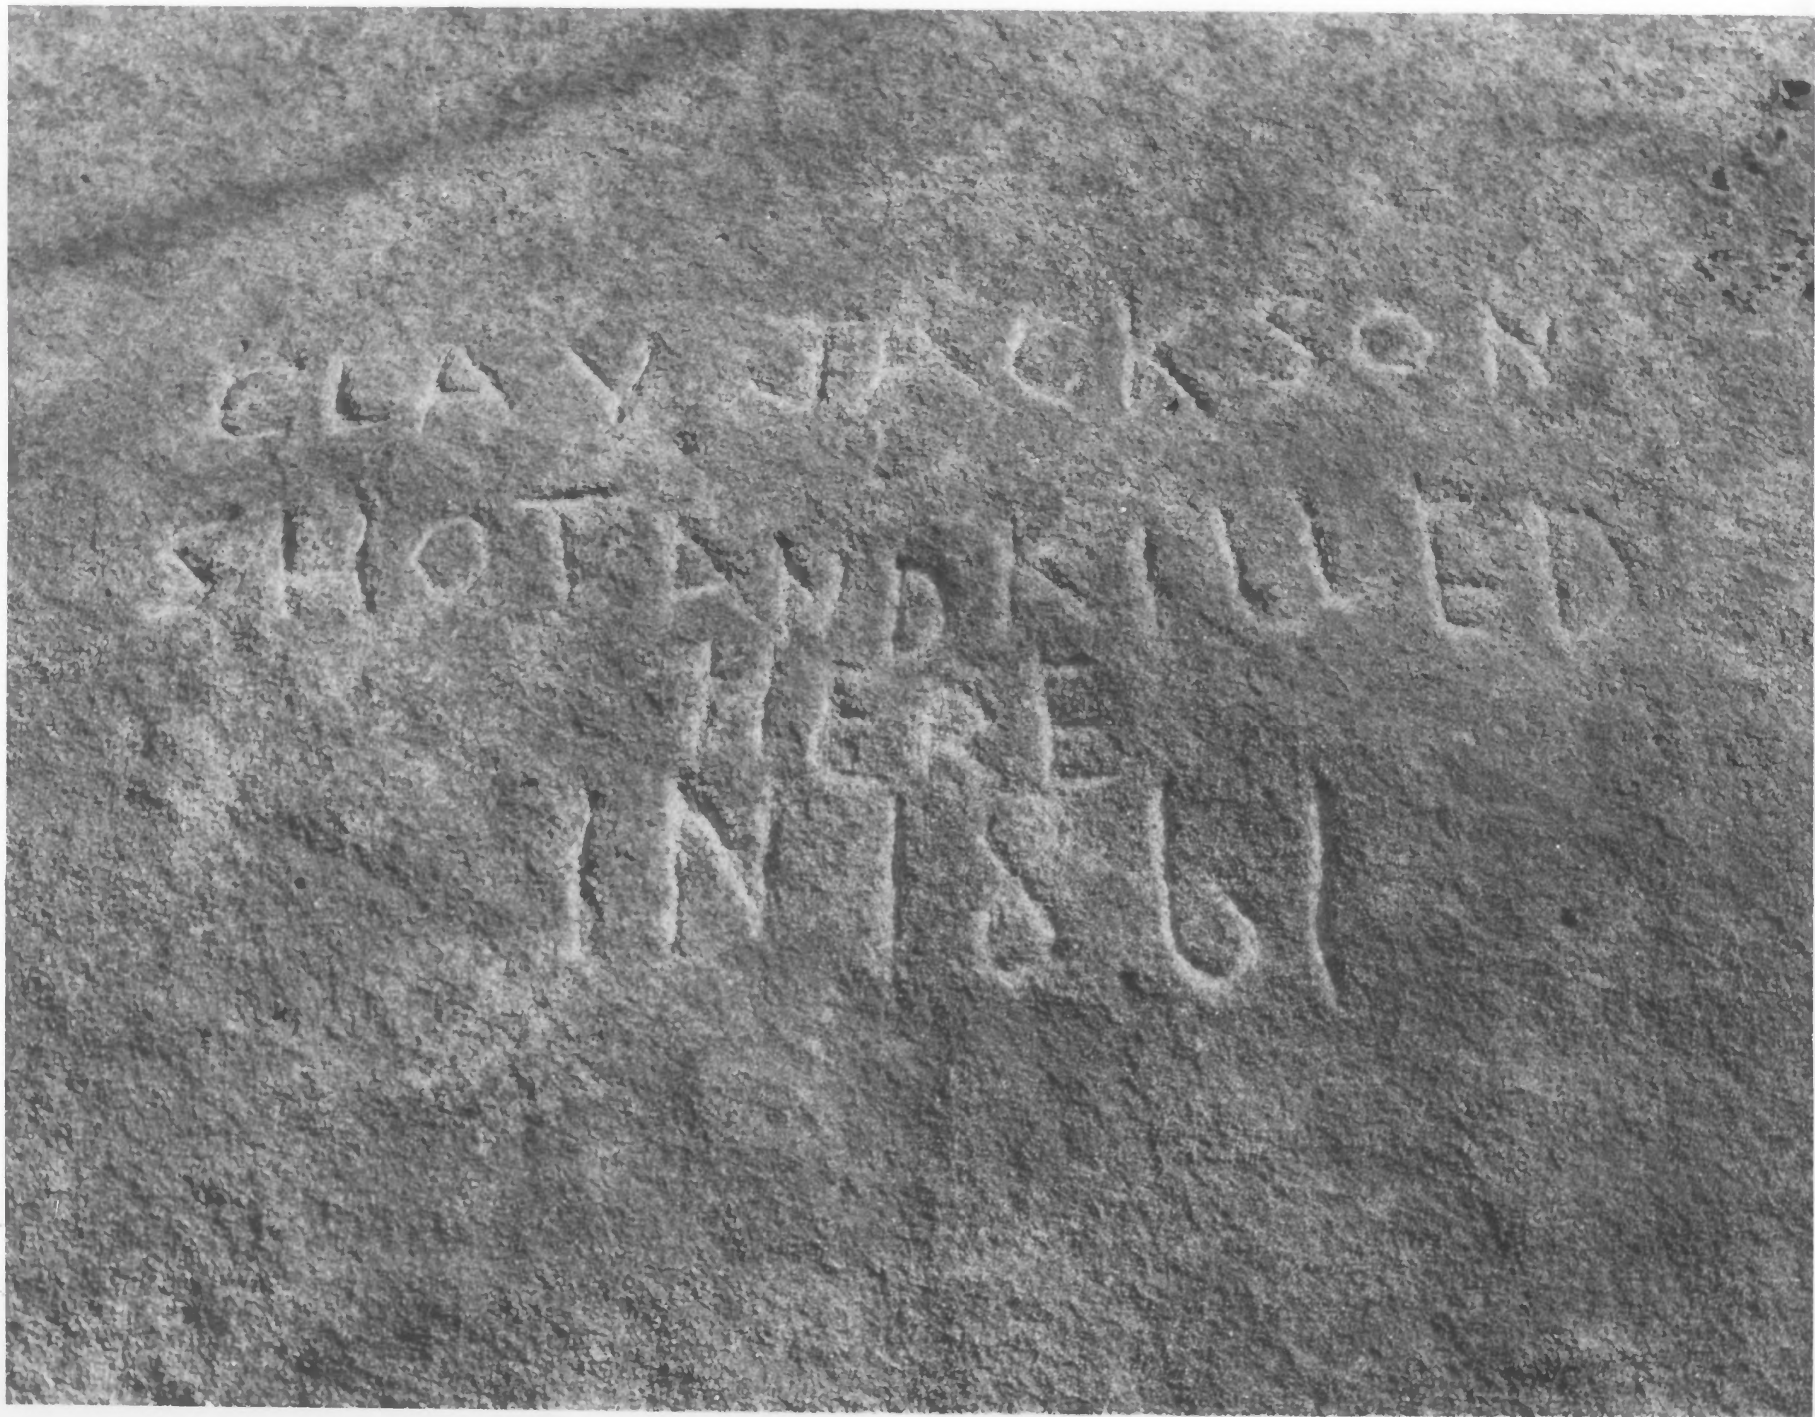 CLAY JACKSON
SHOT AND KILLED
HERE
IN 1861